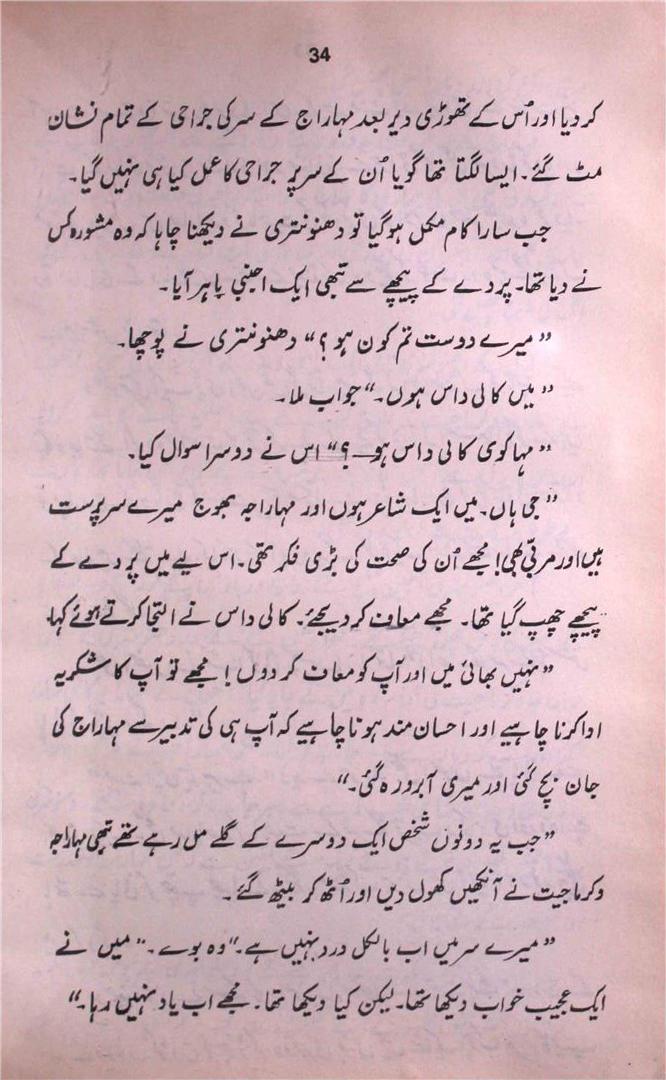 34
کر دیا اور اُس کے تھوڑی دیر بعد مہاراج کے سر کی جراحی کے تمام نشان
مٹ گئے۔ ایسا لگتا تھا گویا اُن کے سر پر جراحی کا عمل کیا ہی نہیں گیا۔
جب سارا کام مکمل ہو گیا تو دھنونتری نے دیکھنا چاہا کہ وہ مشورہ کس
نے دیا تھا۔ پردے کے پیچھے سے تبھی ایک اجنبی باہر آیا۔
”میرے دوست تم کون ہو ؟“ دھنونتری نے پوچھا۔
”میں کالی داس ہوں۔“ جواب ملا۔
”مہاکوی کالی داس ہو ؟“ اس نے دوسرا سوال کیا۔
”جی ہاں۔ میں ایک شاعر ہوں اور مہاراجہ بھوج میرے سرپرست
ہیں اور مربّی بھی! مجھے اُن کی صحت کی بڑی فکر تھی۔ اس لیے میں پردے کے
پیچھے چھپ گیا تھا۔ مجھے معاف کر دیجئے۔ کالی داس نے التجا کرتے ہوئے کہا۔
”نہیں بھائی میں اور آپ کو معاف کر دوں ! مجھے تو آپ کا شکریہ
ادا کرنا چاہیے اور احسان مند ہونا چاہیے کہ آپ ہی کی تدبیر سے مہاراج کی
جان بچ گئی اور میری آبرو رہ گئی۔“
”جب یہ دونوں شخص ایک دوسرے کے گلے مل رہے تھے تبھی مہاراجہ
وکرماجیت نے آنکھیں کھول دیں اور اُٹھ کر بیٹھ گئے۔
”میرے سر میں اب بالکل درد نہیں ہے۔“ وہ بولے۔ ”میں نے
ایک عجیب خواب دیکھا تھا۔ لیکن کیا دیکھا تھا۔ مجھے اب یاد نہیں رہا۔“